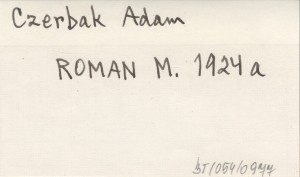 Czerbak Adam
ROMAN M. 1924a
BT/054/0977